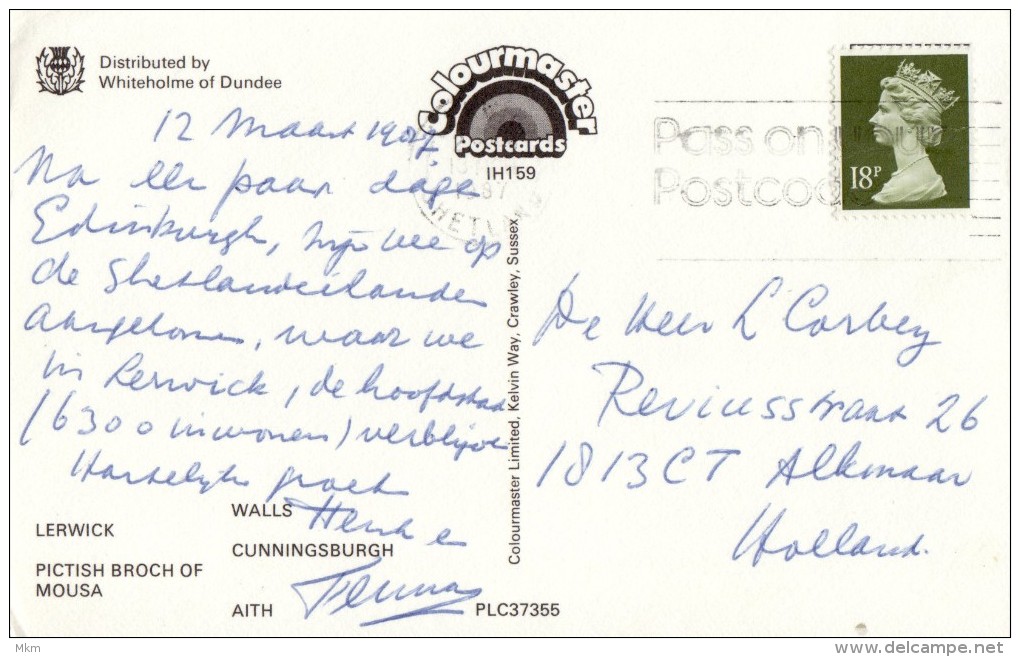 Distributed by
Whiteholme of Dundee
Colourmaster
Postcards
IH159
Pass on your
Postcode
18P
12 Maart 1987.
Na een paar dagen
Edinburgh, zijn we op
de Shetlandeilanden
aangekomen, waar we
in Lerwick, de hoofdstad
(6300 inwoners) verblijven
Hartelijke groeten
Henk e
LERWICK
PICTISH BROCH OF
MOUSA
WALLS
CUNNINGSBURGH
AITH
PLC37355
Colourmaster Limited, Kelvin Way, Crawley, Sussex
De Heer L Corbey
Reviusstraat 26
1813CT Alkmaar
Holland.
Mkm
www.delcampe.net